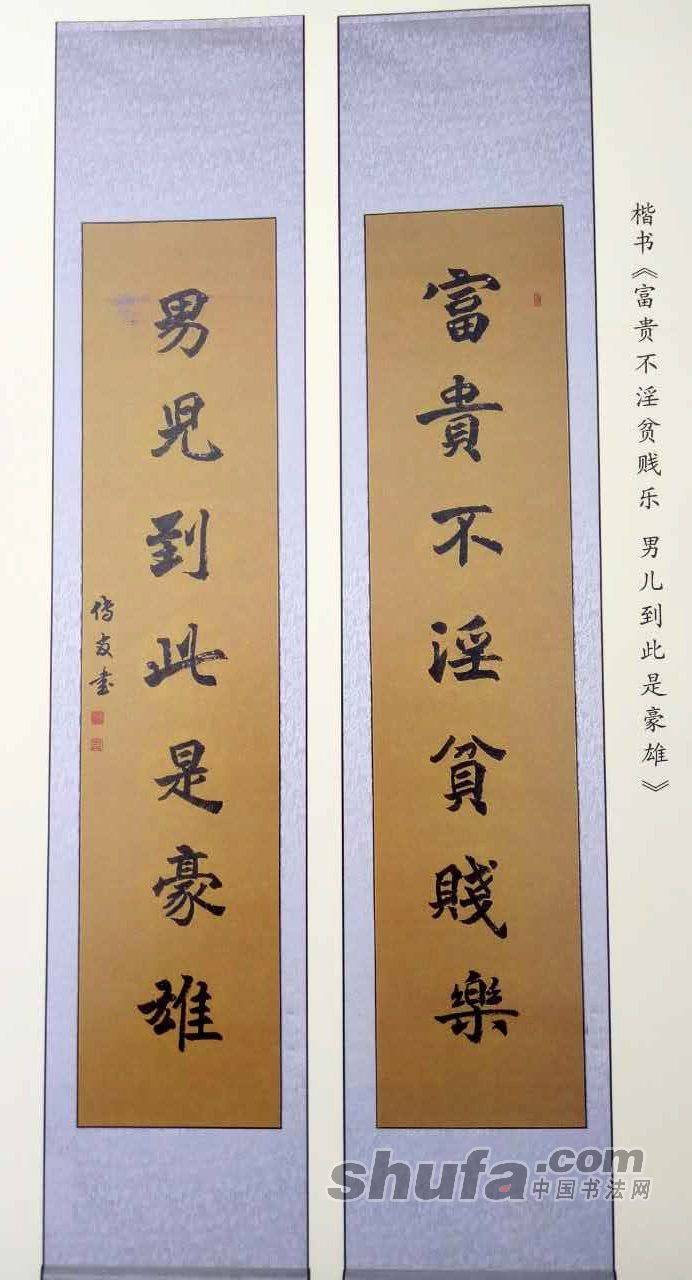 楷书《富贵不淫贫贱乐 男儿到此是豪雄》
富貴不淫貧賤樂
男児到此是豪雄
傳友书
shufa.com
中国书法网